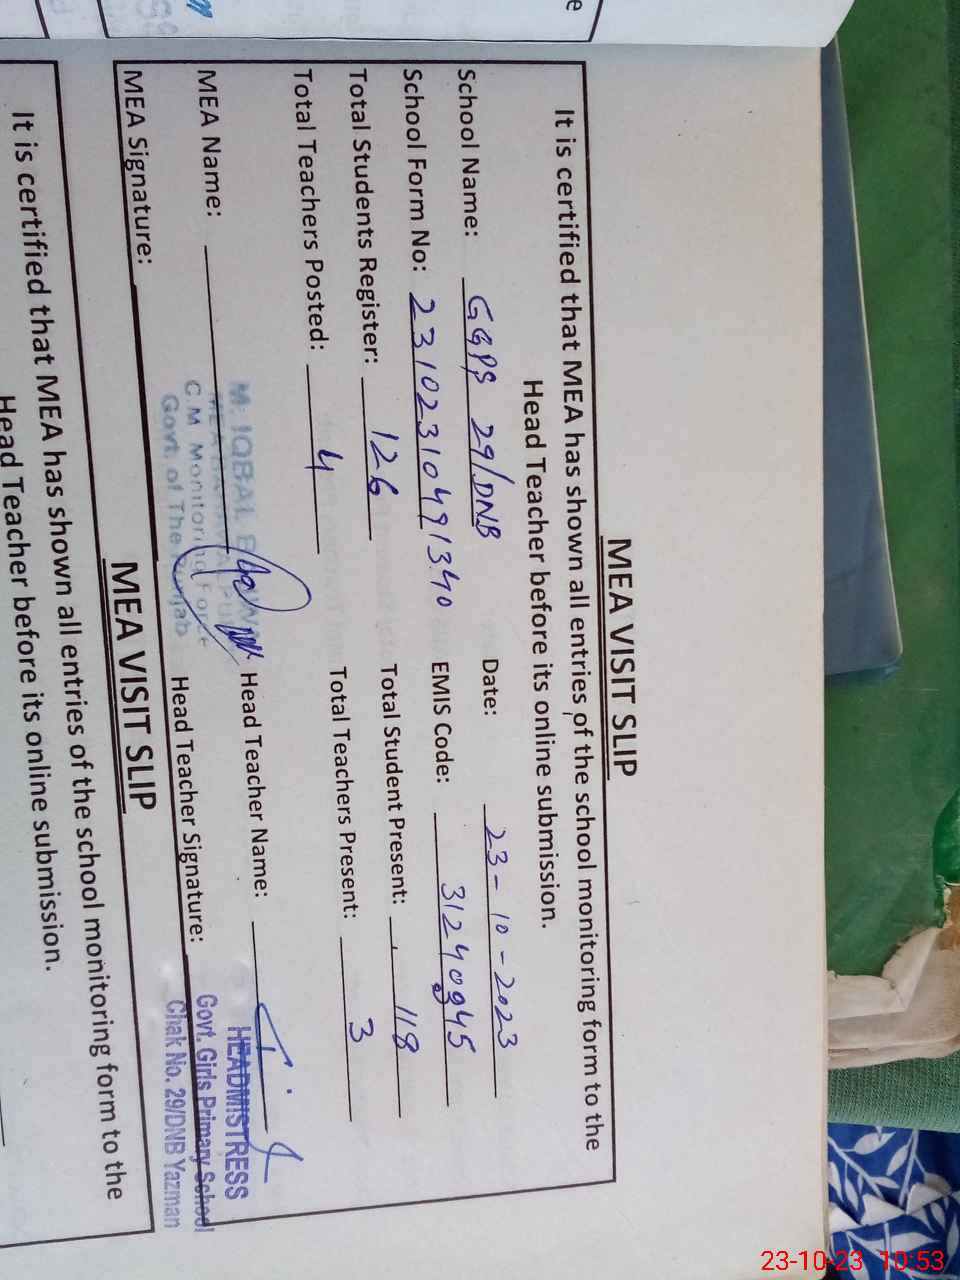 MEA VISIT SLIP
It is certified that MEA has shown all entries of the school monitoring form to the
Head Teacher before its online submission.
School Name: GGPS 29/DNB Date: 23-10-2023
School Form No: 23102310491340 EMIS Code: 31240945
Total Students Register: 126 Total Student Present: 118
Total Teachers Posted: 4 Total Teachers Present: 3
MEA Name: Head Teacher Name:
M. IQBAL
C.M. Monitoring Force
Govt. of The Punjab
HEADMISTRESS
Govt. Girls Primary School
Chak No. 29/DNB Yazman
MEA Signature: Head Teacher Signature:
MEA VISIT SLIP
It is certified that MEA has shown all entries of the school monitoring form to the
Head Teacher before its online submission.
23-10-23 10:53